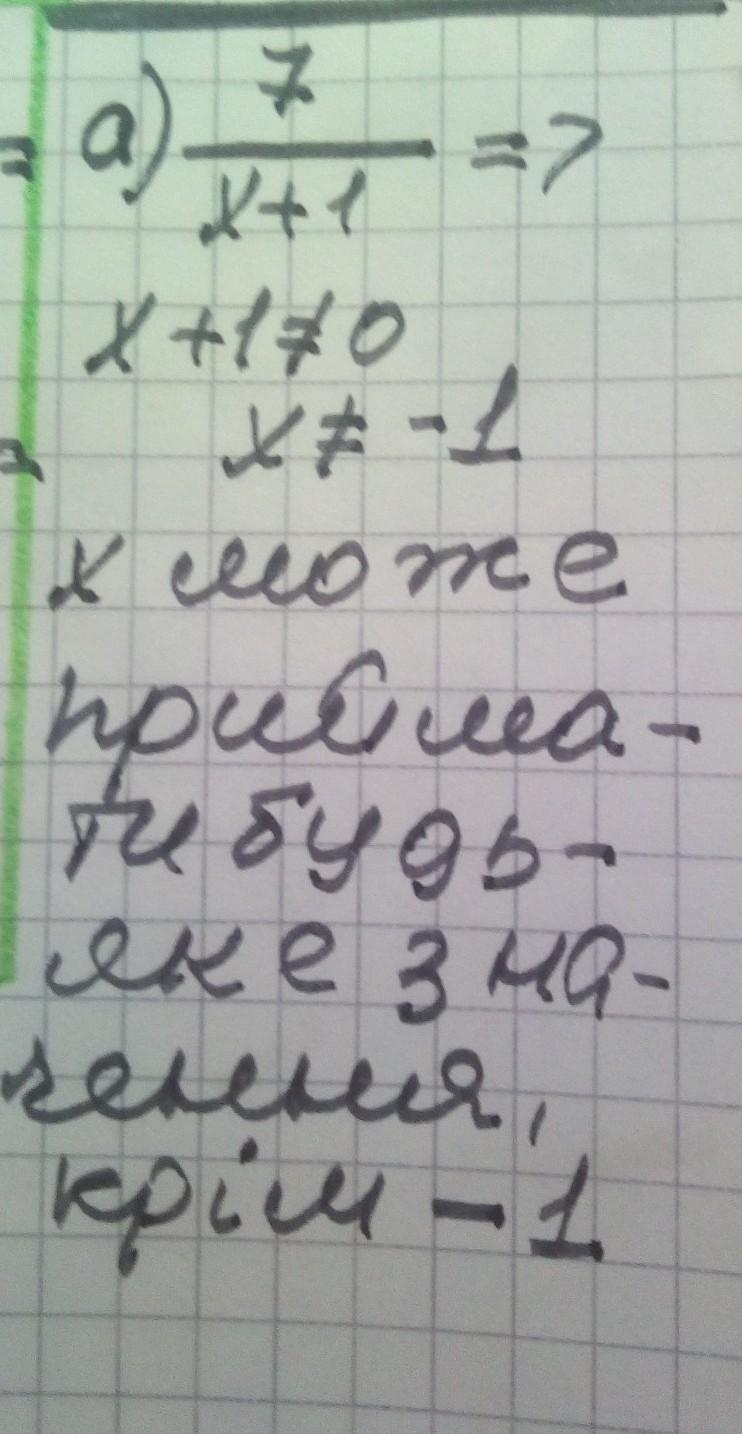 = а) 7/(x+1) =>
x+1≠0
x≠ -1
х може
прийма-
ти будь-
яке зна-
чення,
крім -1